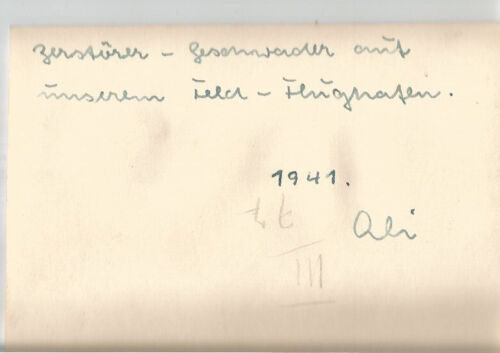 Zerstörer - Geschwader auf
unserem Feld - Flughafen.
1941.
Abi
III